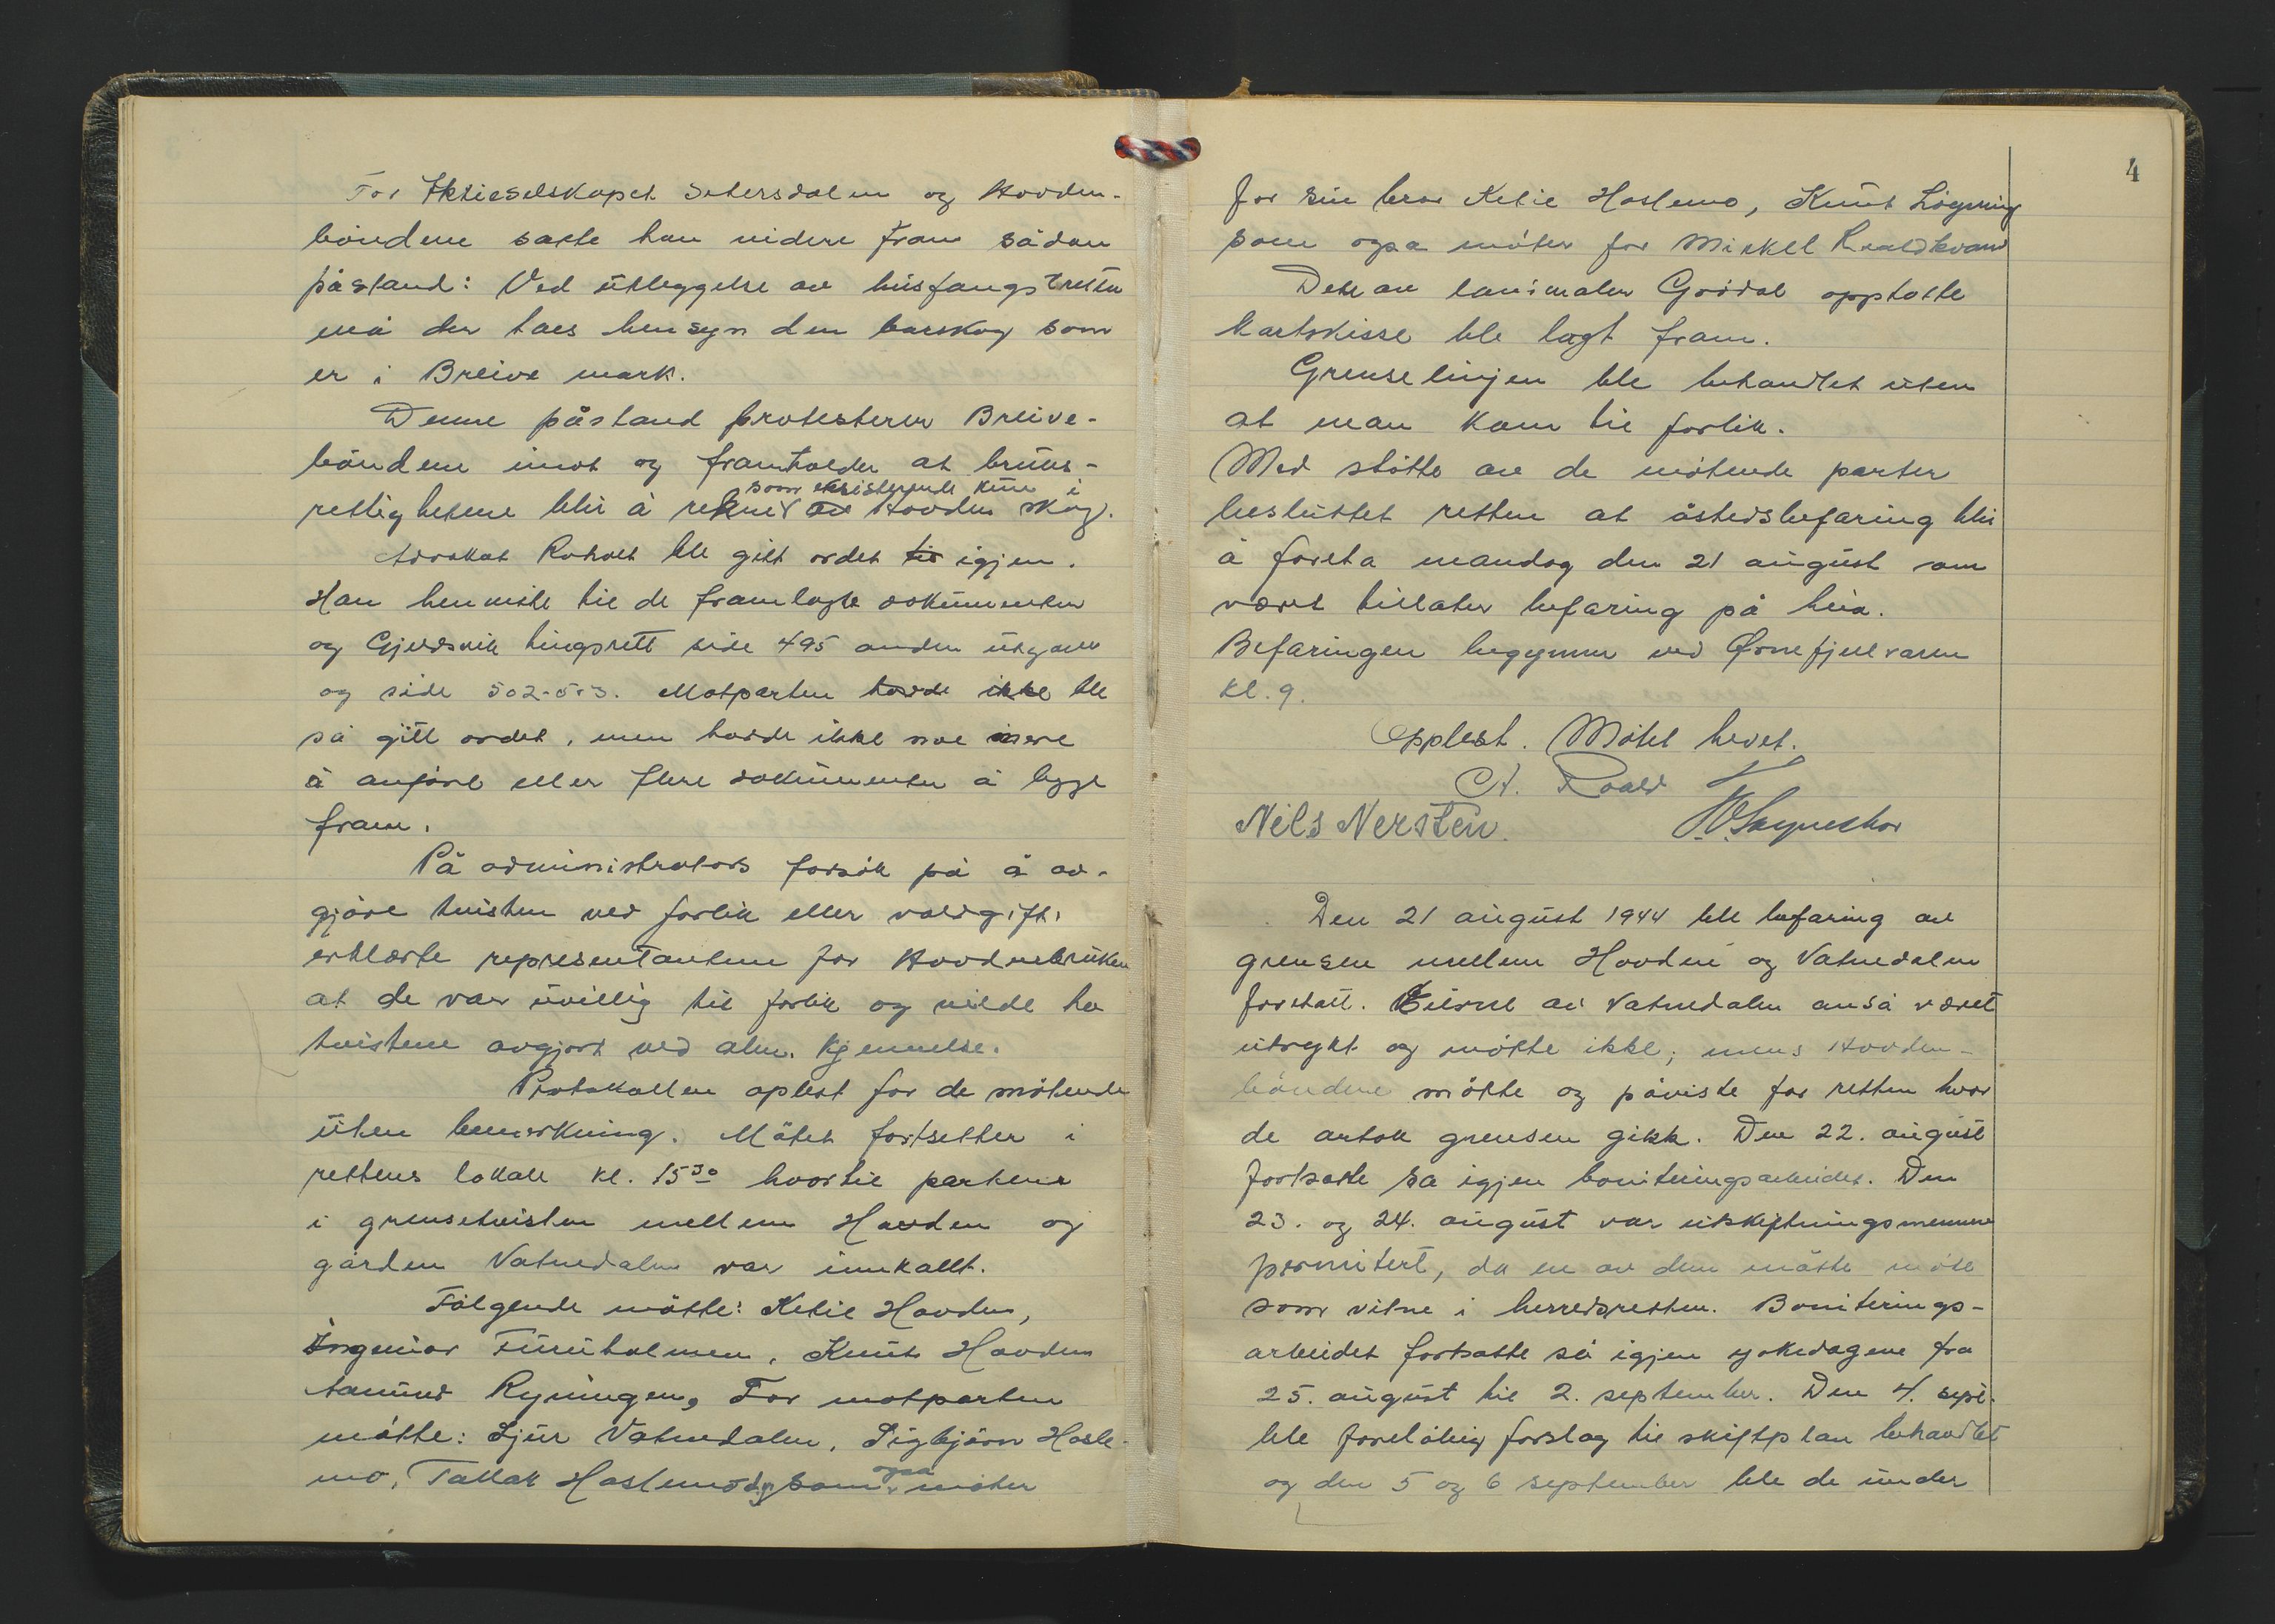 For Aktieselskapet Setersdalen og Hovden-
böndene satte han videre fram sådan
påstand: Ved utleggelse av husfangsretten
må der taes hensyn den barskog som
er i Breive mark.
Denne påstand protesterer Breive-
böndene imot og framholder at bruks-
som eksisterende kun i
rettighetene blir å rekne av Hovden skog.
Advokat Roholt ble gitt ordet til igjen.
Han henviste til de framlagte dokumenter
og Gjerdsvik tingsrett side 495 anden utgave
og side 502-503. Motparten havde ikke ble
så gitt ordet, men havde ikke noe mere
å anföre eller flere dokumenter å legge
fram.
På administrators forsök på å av-
gjöre tvisten ved forlik eller voldgift,
erklærte representantene for Hovdenbruken
at de var uvillig til forlik og vilde ha
tvistene avgjort ved alm. kjennelse.
Protokollen oplest for de mötende
uten bemerkning. Mötet fortsetter i
rettens lokale kl. 15³⁰ hvortil partene
i grensetvisten mellem Hovden og
gården Vatnedalen var innkallt.
Fölgende mötte: Ketil Hovden,
Ingeniör Furuholmen, Knut Hovden
Aanund Ryningen, For motparten
mötte: Sjur Vatnedalen, Sigbjörn Hasle-
mo, Tallak Haslemo og som også möter
4
for sin bror Ketil Haslemo, Knut Lögning
som også möter for Mikkel
Dete av landmåler Gröдаl opptatte
kartskisse ble lagt fram.
Grenselinjen ble behandlet uten
at man kom til forlik.
Med stötte av de mötende parter
besluttet retten at åstedsbefaring blir
å foreta mandag den 21 august om
været tillater befaring på heia.
Befaringen begynner ved Ørnefjellvaren
kl. 9.
Opplest. Mötet hevet.
A. Roald
Nils Nersten
Den 21 august 1944 ble befaring av
grensen mellem Hovden og Vatnedalen
foretatt. Eierne av Vatnedalen anså været
utrykt og mötte ikke, mens Hovden-
böndene mötte og påviste for retten hvor
de antok grensen gikk. Den 22. august
fortsatte så igjen boniteringsarbeidet. Den
23. og 24. august var utskiftningsmennene
permitert, da en av dem måtte möte
som vitne i herredsretten. Boniterings-
arbeidet fortsatte så igjen yrkedagene fra
25. august til 2. september. Den 4. sept.
ble forelöbig forslag til skiftplan behandlet
og den 5 og 6 september ble de under